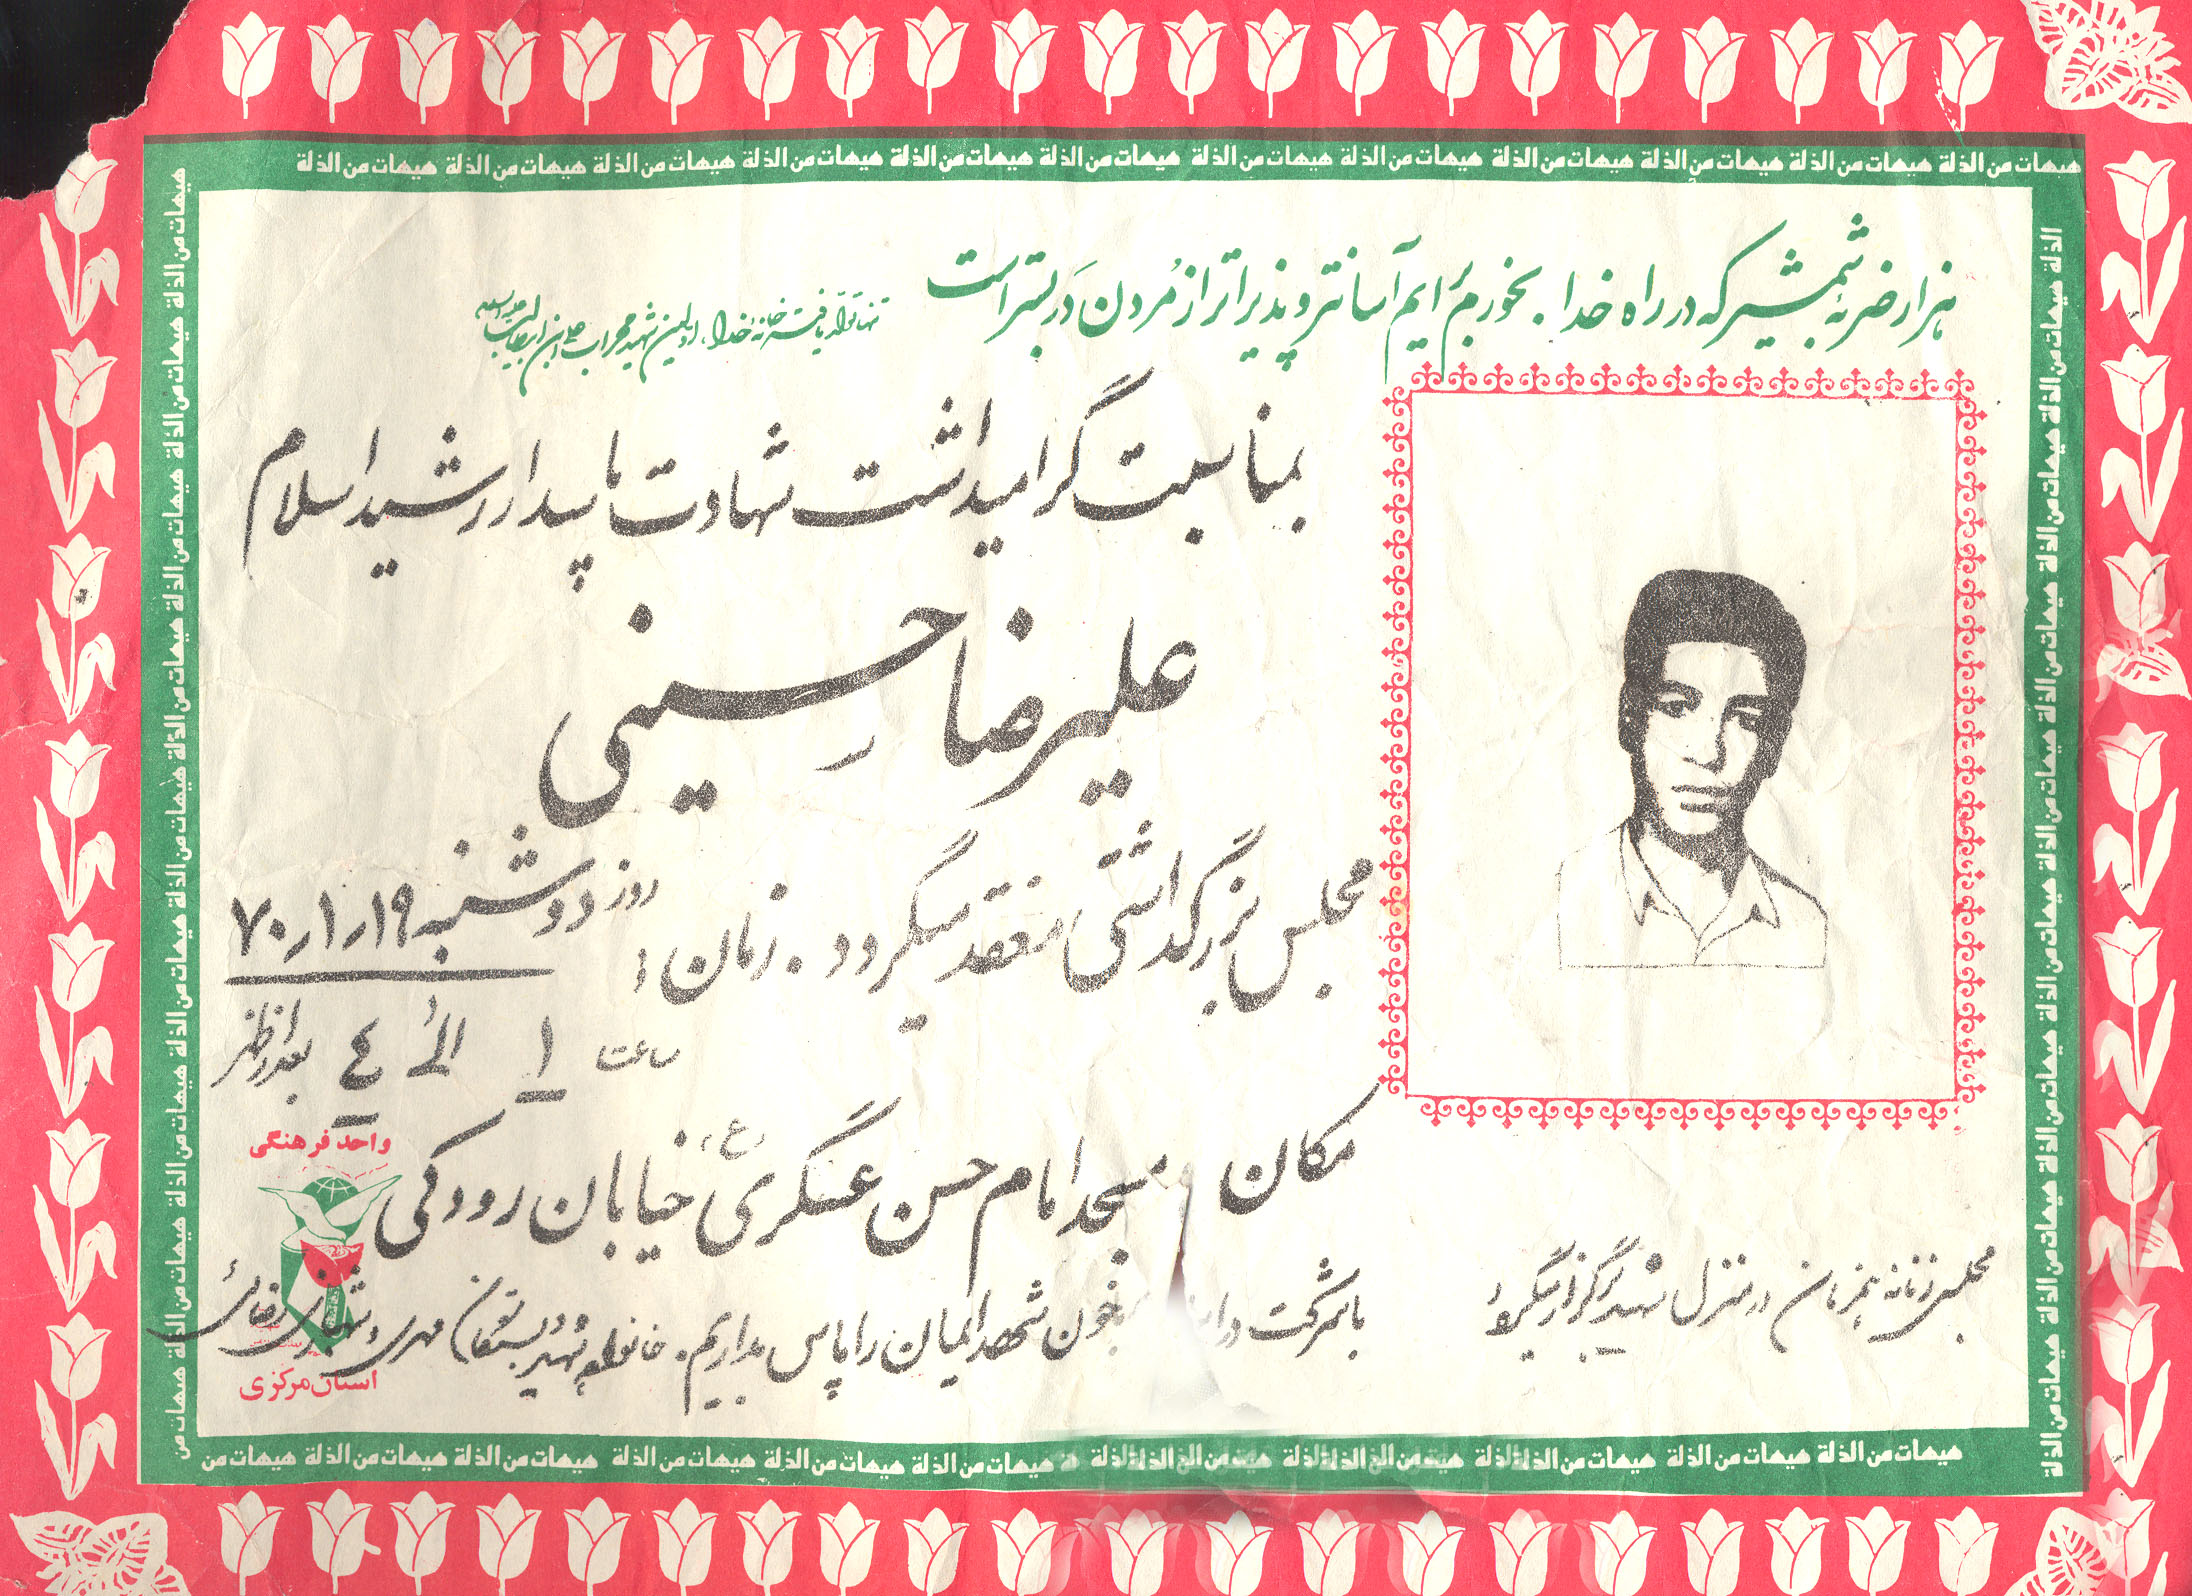 هیهات من الذلة هیهات من الذلة هیهات من الذلة هیهات من الذلة هیهات من الذلة هیهات من الذلة هیهات من الذلة هیهات من الذلة هیهات من الذلة هیهات من الذلة هیهات من الذلة هیهات من الذلة
هزار ضربهٔ شمشیر که در راه خدا بخورم برایم آسانتر و پذیراتر از مردن در بستر است
تنها تولد یافته خانه خدا، اولین شهید محراب علی ابن ابیطالب علیه السلام
بمناسبت گرامیداشت شهادت پاسدار رشید اسلام
علیرضا حسینی
مجلس بزرگداشتی منعقد میگردد. زمان: روز دوشنبه ۷۰/۱/۱۹
ساعت ۱ الی ٤ بعداز ظهر
مکان مسجد امام حسن عسگری (ع) خیابان رودکی
واحد فرهنگی
استان مرکزی
مجلس زنانه همزمان در منزل شهید برگزار میگردد
با شرکت در خون شهدایمان را پاس بداریم. خانواده شهید، بستگان
هیهات من الذلة هیهات من الذلة هیهات من الذلة هیهات من الذلة هیهات من الذلة